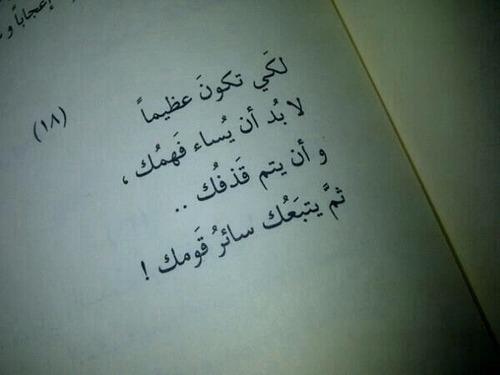 إعجاباً و
(١٨)
لكَي تكونَ عظيماً
لا بُد أن يُساء فَهمُك ،
و أن يتم قَذفُك ..
ثمَّ يتبَعُك سائرُ قَومك !